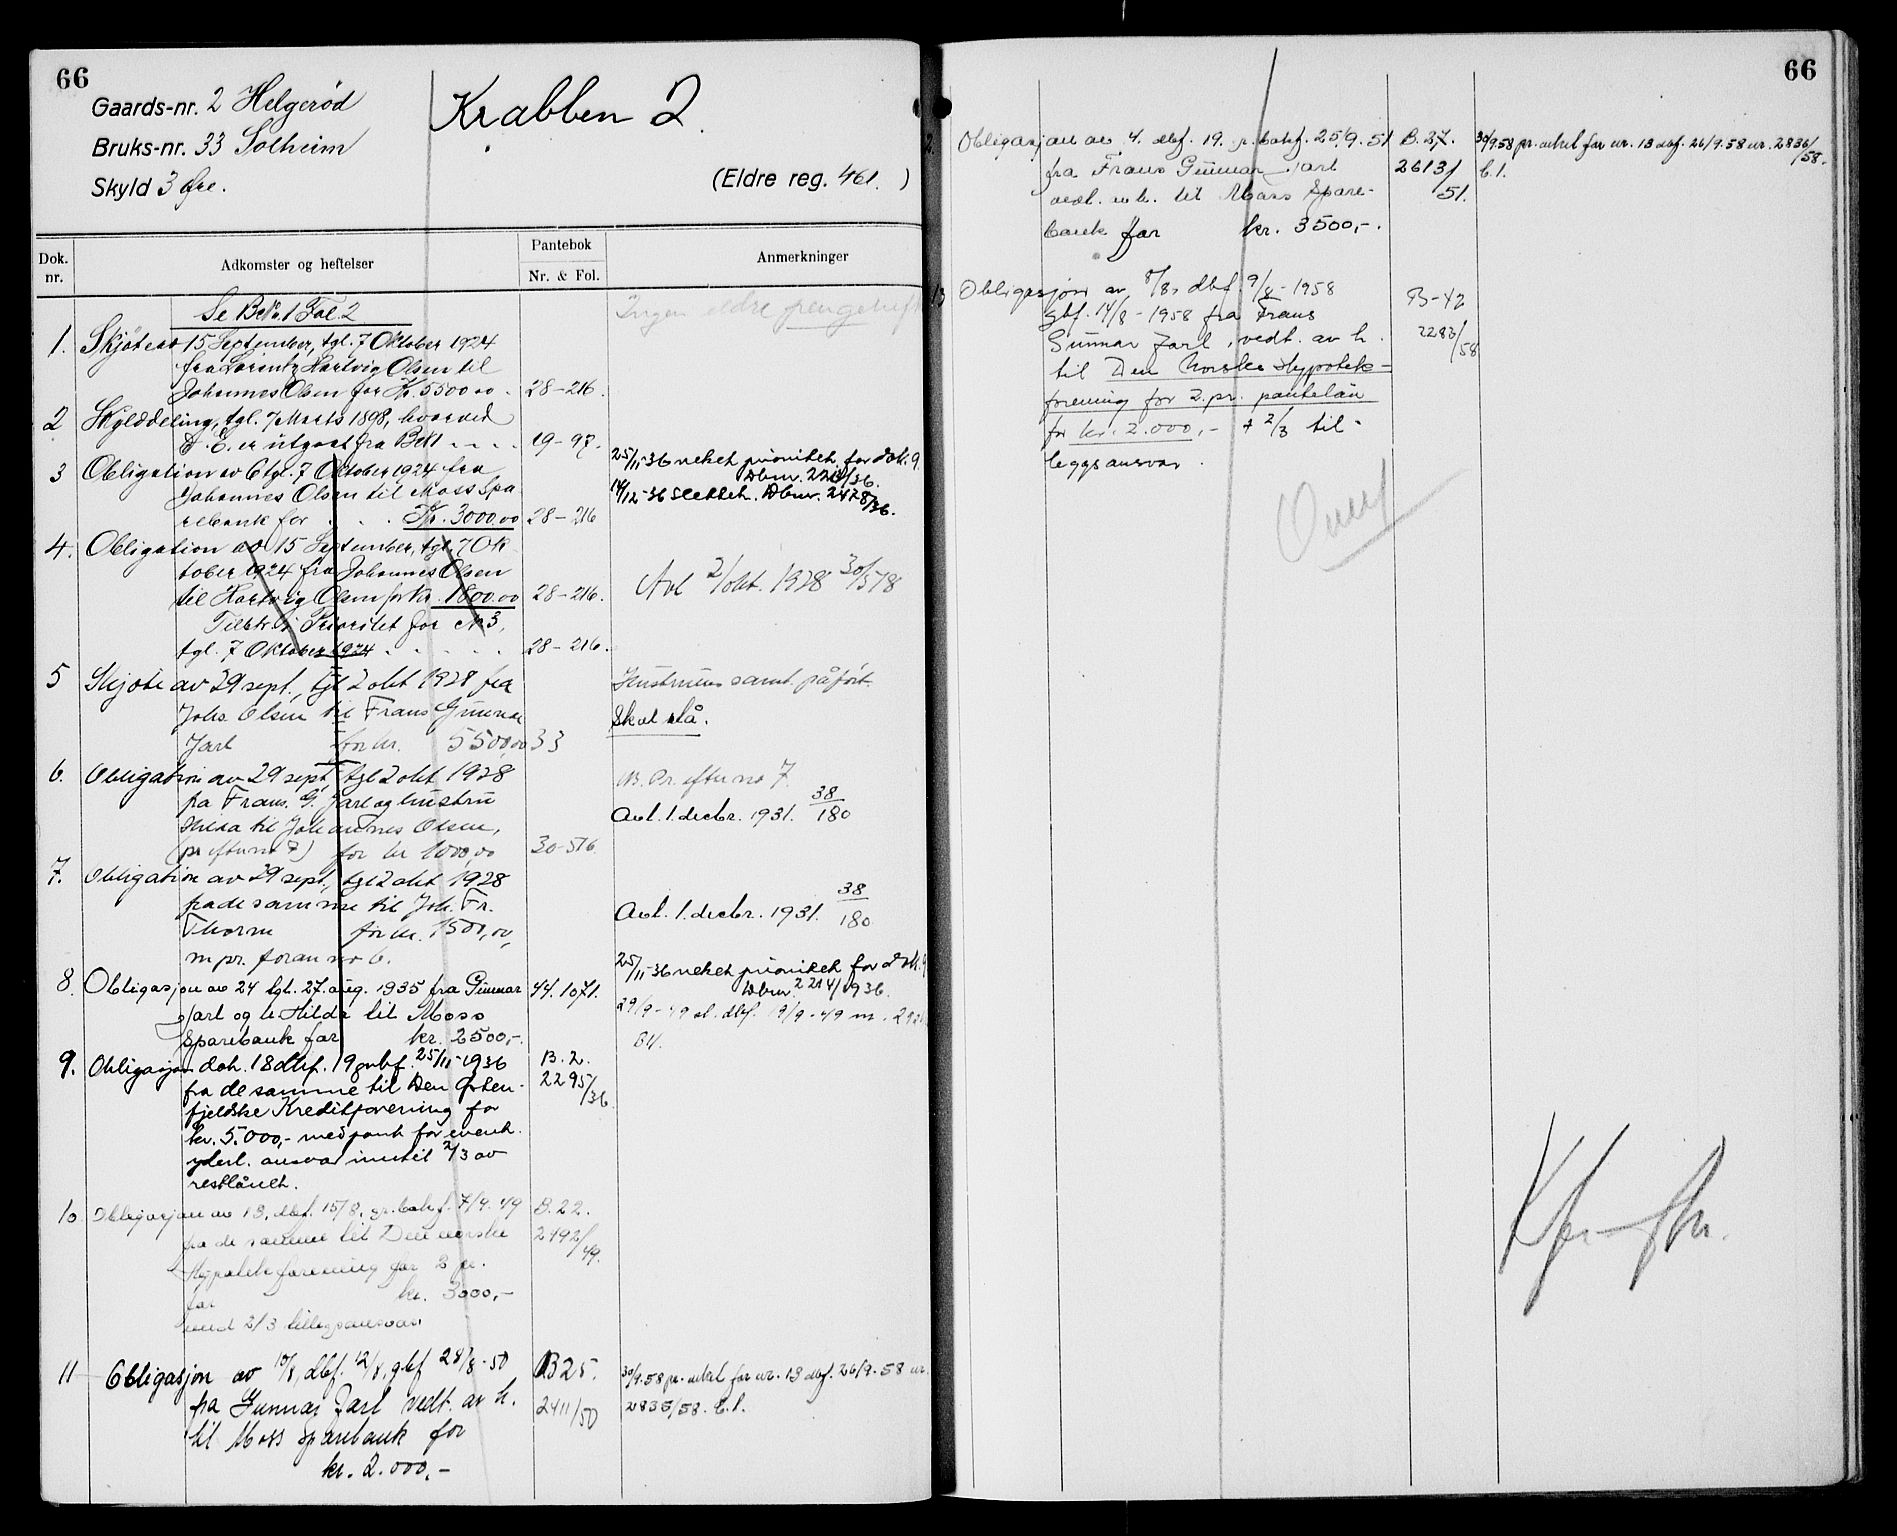 66
Gaards-nr. 2 Helgerød
Bruks-nr. 33 Solheim
Skyld 3 Øre.
Krabben 2.
(Eldre reg. 461. )
Dok. nr.
Adkomster og heftelser
Pantebok
Nr. & Fol.
Anmerkninger
Se Bd. 1 Fol 2
Ingen eldre pengeheft
1. Skjöte av 15 September, tgl. 7 Oktober 1924
fra Lorintz Hartvig Olsen til
Johannes Olsen for Kr. 5500.00. 28-216.
2 Skylddeling, tgl. 7 Marts 1898, hvorved
D. E. er utgaat fra B No 1 . . . . 19-97.
3 Obligation av 6 tgl. 7 Oktober 1924 fra
Johannes Olsen til Moss Spa
rebank for . . . Kr. 3000.00 28-216
25/11-36 veket prioritet for dok. 9
Dbnr. 2214/36.
14/12-36 slettet. Dbnr. 2428/36.
4. Obligation av 15 September, tgl. 7 Ok
tober 1924 fra Johannes Olsen
til Hartvig Olsen for kr. 1800.00 28-216.
Prioritet for No 3,
tgl. 7 Oktober 1924 . . . . . 28-216.
Avl 2/okt. 1928 30/578
5 Skjöte av 29 sept., tgl 2 okt 1928 fra
Johs Olsen til Frans Gunnar
Jarl for kr. 5500,00 33
Hustruens samt. påført.
Skal stå.
6. Obligation av 29 sept, tgl 2 okt 1928
fra Frans. G. Jarl og hustru
Hilda til Johannes Olsen,
(pr efter no 7) for kr 1000,00 30-576.
N. Pr. efter no 7.
Avl. 1. decbr. 1931. 38/180
7. Obligation av 29 sept., tgl 2 okt 1928
fra de samme til Joh. Fr.
Thorne for kr. 1500,00,
m pr. foran no 6.
Avl. 1. decbr. 1931. 38/180
8. Obligasjon av 24 tgl. 27. aug. 1935 fra Gunnar 44. 1071.
Jarl og h. Hilda til Moss
Sparebank for kr. 2500,-.
25/11-36 veket prioritet for dok. 9
Dbnr. 2214/1936.
29/9-49 sl. dbf. 19/9-49 nr.
9. Obligasjon dat. 18 dbf. 19 grbf. 25/11-1936 B. 2.
fra de samme til Den Østen- 2295/36
fjeldske Kreditforening for
kr. 5.000,- med pant for event.
yderl. ansvar inntil 2/3 av
restlånet.
10 Obligasjon av 13, dbf. 15/8, gr.bokf. 7/9. 49 B. 22.
fra de samme til Den norske 2492/49.
Hypotekforening for 2 pr.
for kr. 3000,-
med 2/3 tilleggsansvar
11 Obligasjon av 10/8, dbf. 12/8, gbf 28/8-50 B 25.
fra Gunnar Jarl vedt. av h. 2411/50
til Moss sparebank for
kr. 2.000,-
30/9.58 pr. veket for nr. 13 dbf. 26/9-58 nr.
2835/58. b.l.
66
2. Obligasjon av 4. dbf. 19. gr.bokf. 25/9. 51 B. 27.
fra Frans Gunnar Jarl 2613/
vedt. av h. til Moss Spare- 51.
bank for kr. 3500,-.
30/9.58 pr. veket for nr. 13 dbf. 26/9.58 nr. 2836/58.
b.l.
13 Obligasjon av 8/8, dbf. 9/8-1958 B-42
gbf. 14/8-1958 fra Frans 2283/58
Gunnar Jarl, vedt. av h.
til Den Norske Hypotek-
forening for 2. pr. pantelån
for kr. 2.000,- + 2/3 til-
leggsansvar.